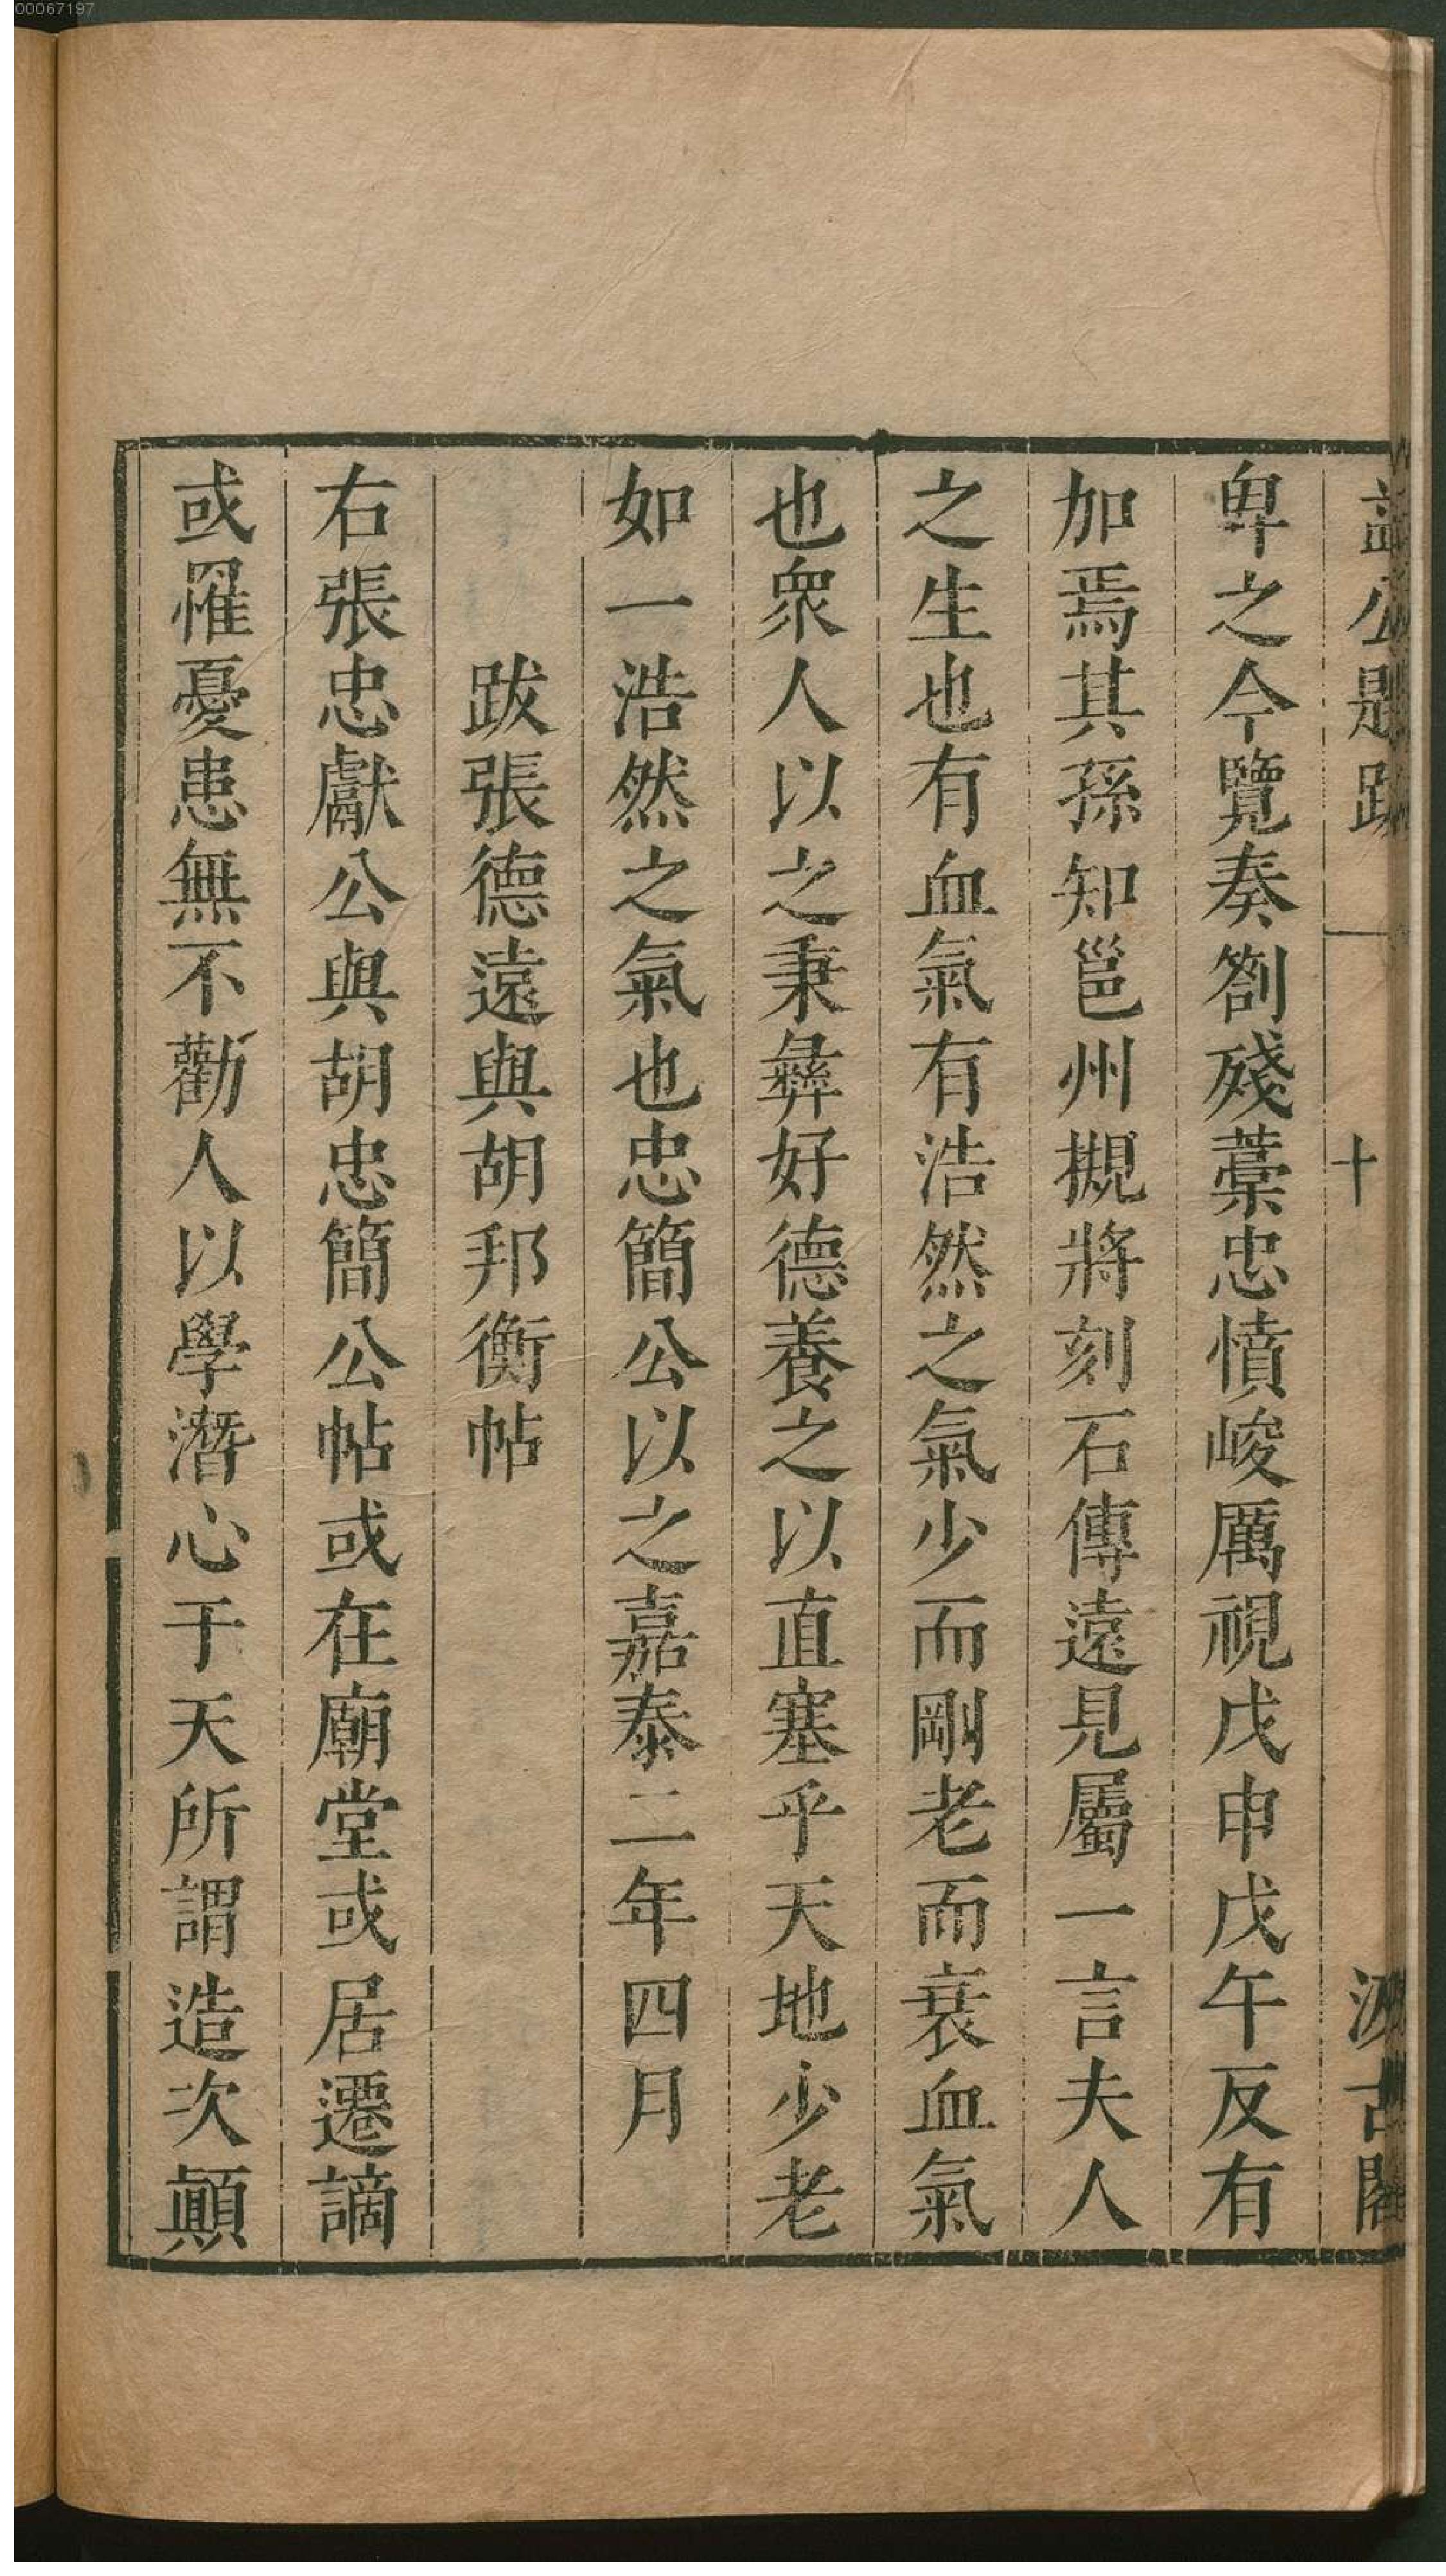 00067197
益公題跋 十 汲古閣
卑之今覽奏劄殘藁忠憤峻厲視戊申戊午反有
加焉其孫知邕州槻將刻石傳遠見屬一言夫人
之生也有血氣有浩然之氣少而剛老而衰血氣
也衆人以之秉彝好德養之以直塞乎天地少老
如一浩然之氣也忠簡公以之嘉泰二年四月
跋張德遠與胡邦衡帖
右張忠獻公與胡忠簡公帖或在廟堂或居遷謫
或罹憂患無不勸人以學潛心于天所謂造次顚